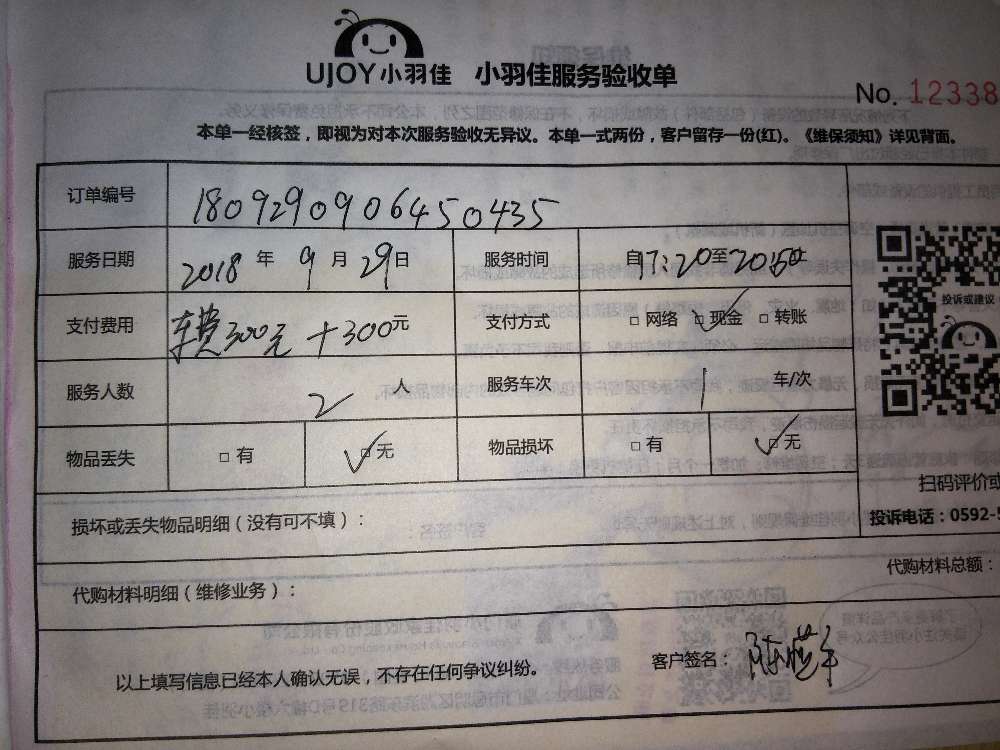 UJOY小羽佳 小羽佳服务验收单
No. 12338
本单一经核签，即视为对本次服务验收无异议。本单一式两份，客户留存一份(红)。《维保须知》详见背面。
订单编号 1809290906450435
服务日期 2018年9月29日 服务时间 自17:20至20:50止
支付费用 车费300元+300元 支付方式 □网络 ☑现金 □转账
服务人数 2人 服务车次 1车/次
物品丢失 □有 ☑无 物品损坏 □有 ☑无
投诉或建议
扫码评价或
投诉电话：0592-5
损坏或丢失物品明细（没有可不填）：
代购材料明细（维修业务）： 代购材料总额：
以上填写信息已经本人确认无误，不存在任何争议纠纷。 客户签名：